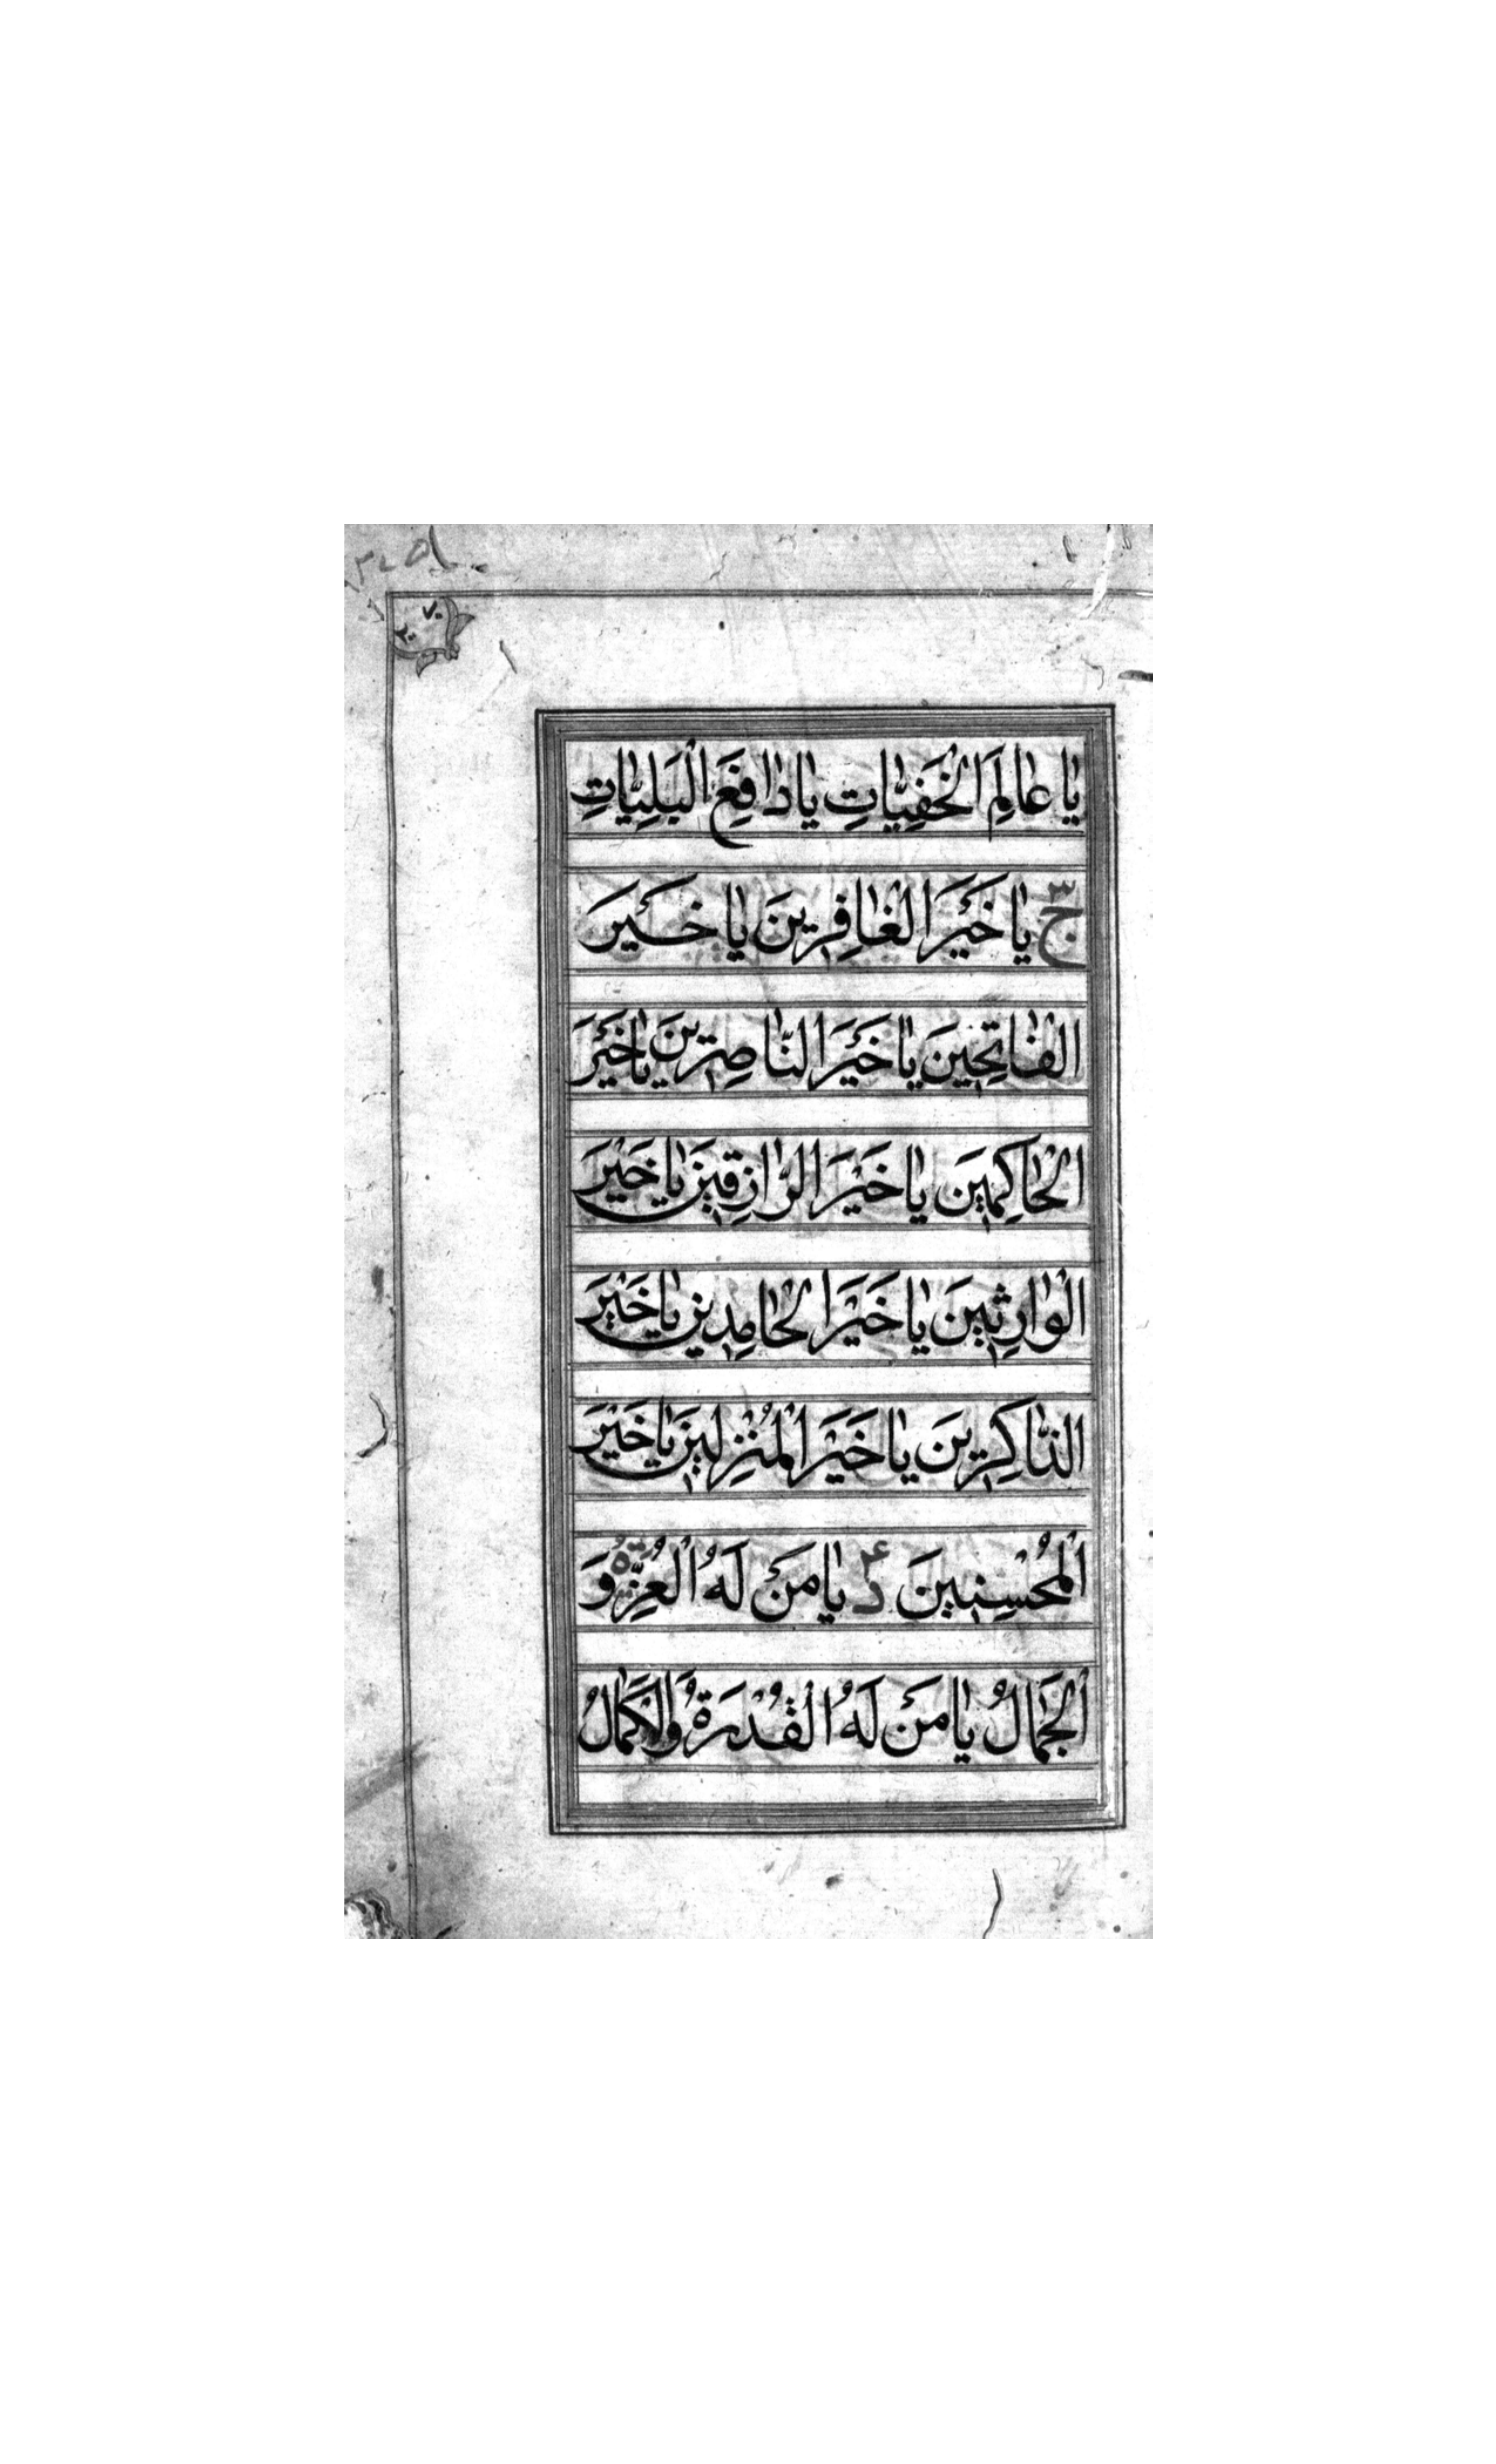 يٰا عٰالِمَ الْخَفِيّٰاتِ يٰا دٰافِعَ الْبَلِيّٰاتِ
ج ٣ يٰا خَيْرَ الْغٰافِرِينَ يٰا خَيْرَ
الْفٰاتِحِينَ يٰا خَيْرَ النّٰاصِرِينَ يٰا خَيْرَ
الْحٰاكِمِينَ يٰا خَيْرَ الرّٰازِقِينَ يٰا خَيْرَ
الْوٰارِثِينَ يٰا خَيْرَ الْحٰامِدِينَ يٰا خَيْرَ
الذّٰاكِرِينَ يٰا خَيْرَ الْمُنْزِلِينَ يٰا خَيْرَ
الْمُحْسِنِينَ د ۴ يٰا مَنْ لَهُ الْعِزَّةُ وَ
الْجَمٰالُ يٰا مَنْ لَهُ الْقُدْرَةُ وَالْكَمٰالُ